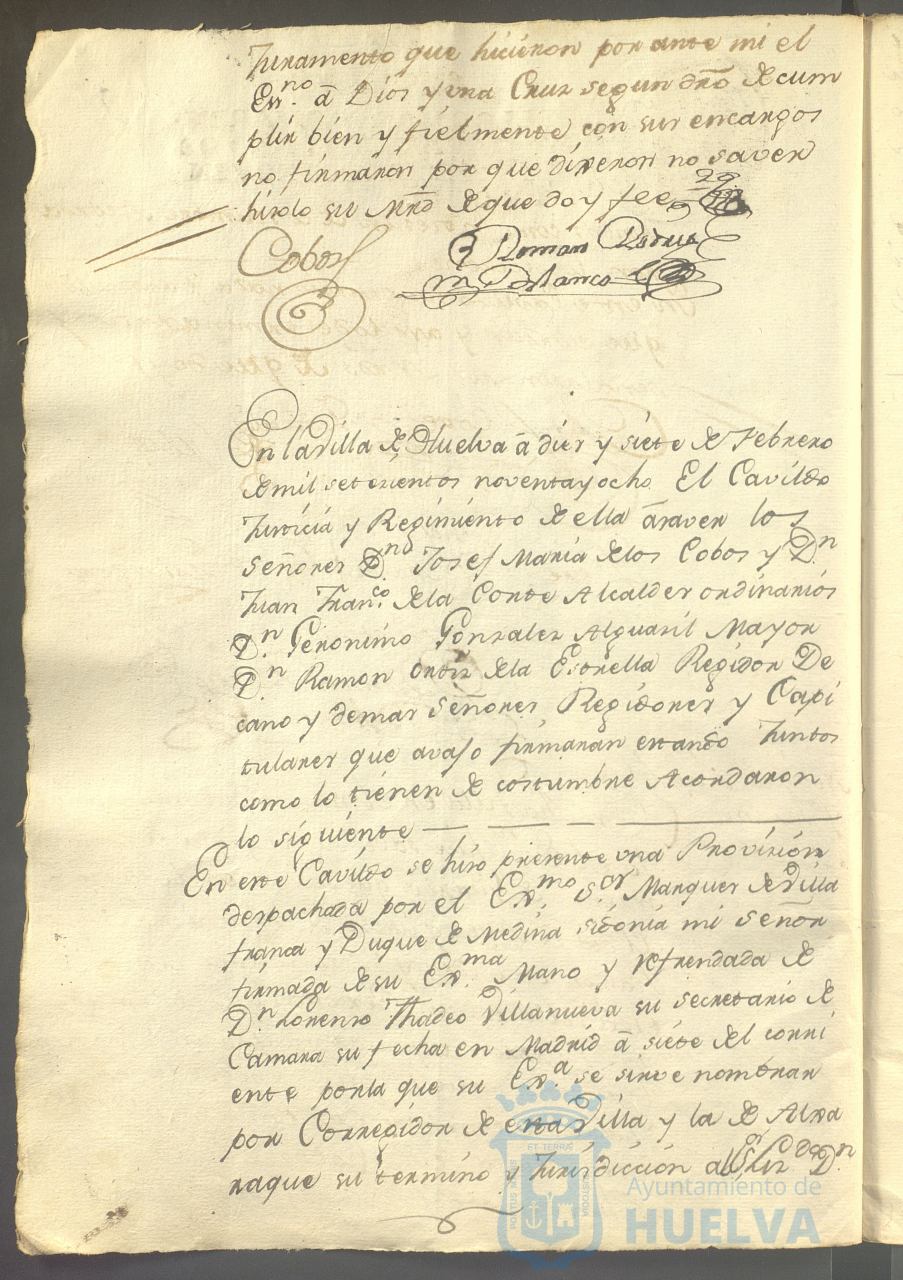 Juramento que hicieron por ante mi el
Essno. â Dios y vna Cruz segun dro de cum
plir bien y fielmente con sus encargos
no firmaron por que dixeron no saver
hizolo su Mrd de que doy fee
Cobos
Roman Perez
Blanco
En la Villa de Huelva â diez y siete de Febrero
de mil setecientos noventa y ocho El Cavildo
Justicia y Regimiento de ella âsaver los
Señores Dn. Josef Maria de los Cobos y Dn
Juan Franco. de la Corte Alcaldes ordinarios
Dn. Geronimo Gonzalez Alguasil Mayor
Dn. Ramon Ortiz de la Estrella Regidor De
cano y demas Señores Regidores y Capi
tulares que avajo firmaran estando Juntos
como lo tienen de costumbre Acordaron
lo siguiente
En este Cavildo se hizo presente vna Provision
despachada por el Exmo. Sor. Marques de Villa
franca y Duque de Medina sidonia mi señor
firmada de su Exma. Mano y refrendada de
Dn. Lorenzo Thadeo Villanueva su secretario de
Camara su fecha en Madrid â siete del corri
ente por la que su Exa. se sirve nombrar
por Corregidor de esta Villa y la de Alxa
raque su termino y Jurisdiccion al Dn
Ayuntamiento de
HUELVA